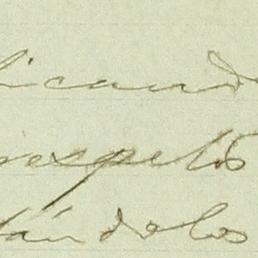 licand
respeto
tándolos